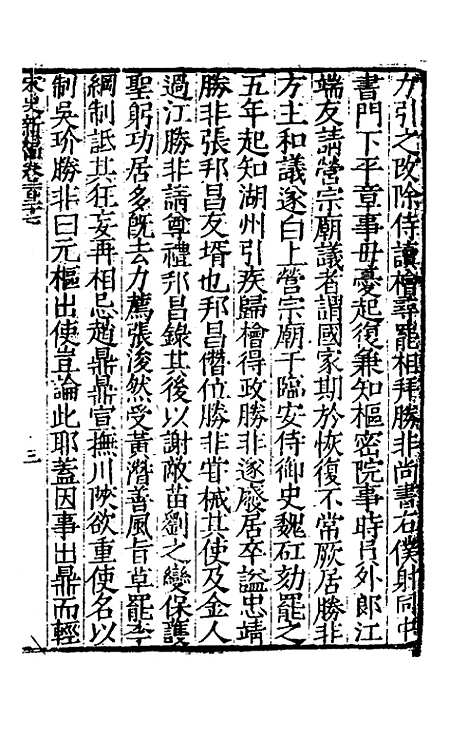 力引之改除侍讀檜尋罷相拜勝非尚書右僕射同中
書門下平章事毋憂起復兼知樞密院事時員外郎江
端友請營宗廟議者謂國家期於恢復不常厥居勝非
方主和議遂白上營宗廟于臨安侍御史魏矼劾罷之
五年起知湖州引疾歸檜得政勝非遂廢居卒謚忠靖
勝非張邦昌友壻也邦昌僭位勝非嘗械其使及金人
過江勝非請尊禮邦昌錄其後以謝敵苗劉之變保護
聖躬功居多旣去力薦張浚然受黃潛善風旨草罷李
綱制詆其狂妄再相忌趙鼎鼎宣撫川陜欲重使名以
制吳玠勝非曰元樞出使豈論此耶蓋因事出鼎而輕
宋史新編卷一百三十七
三